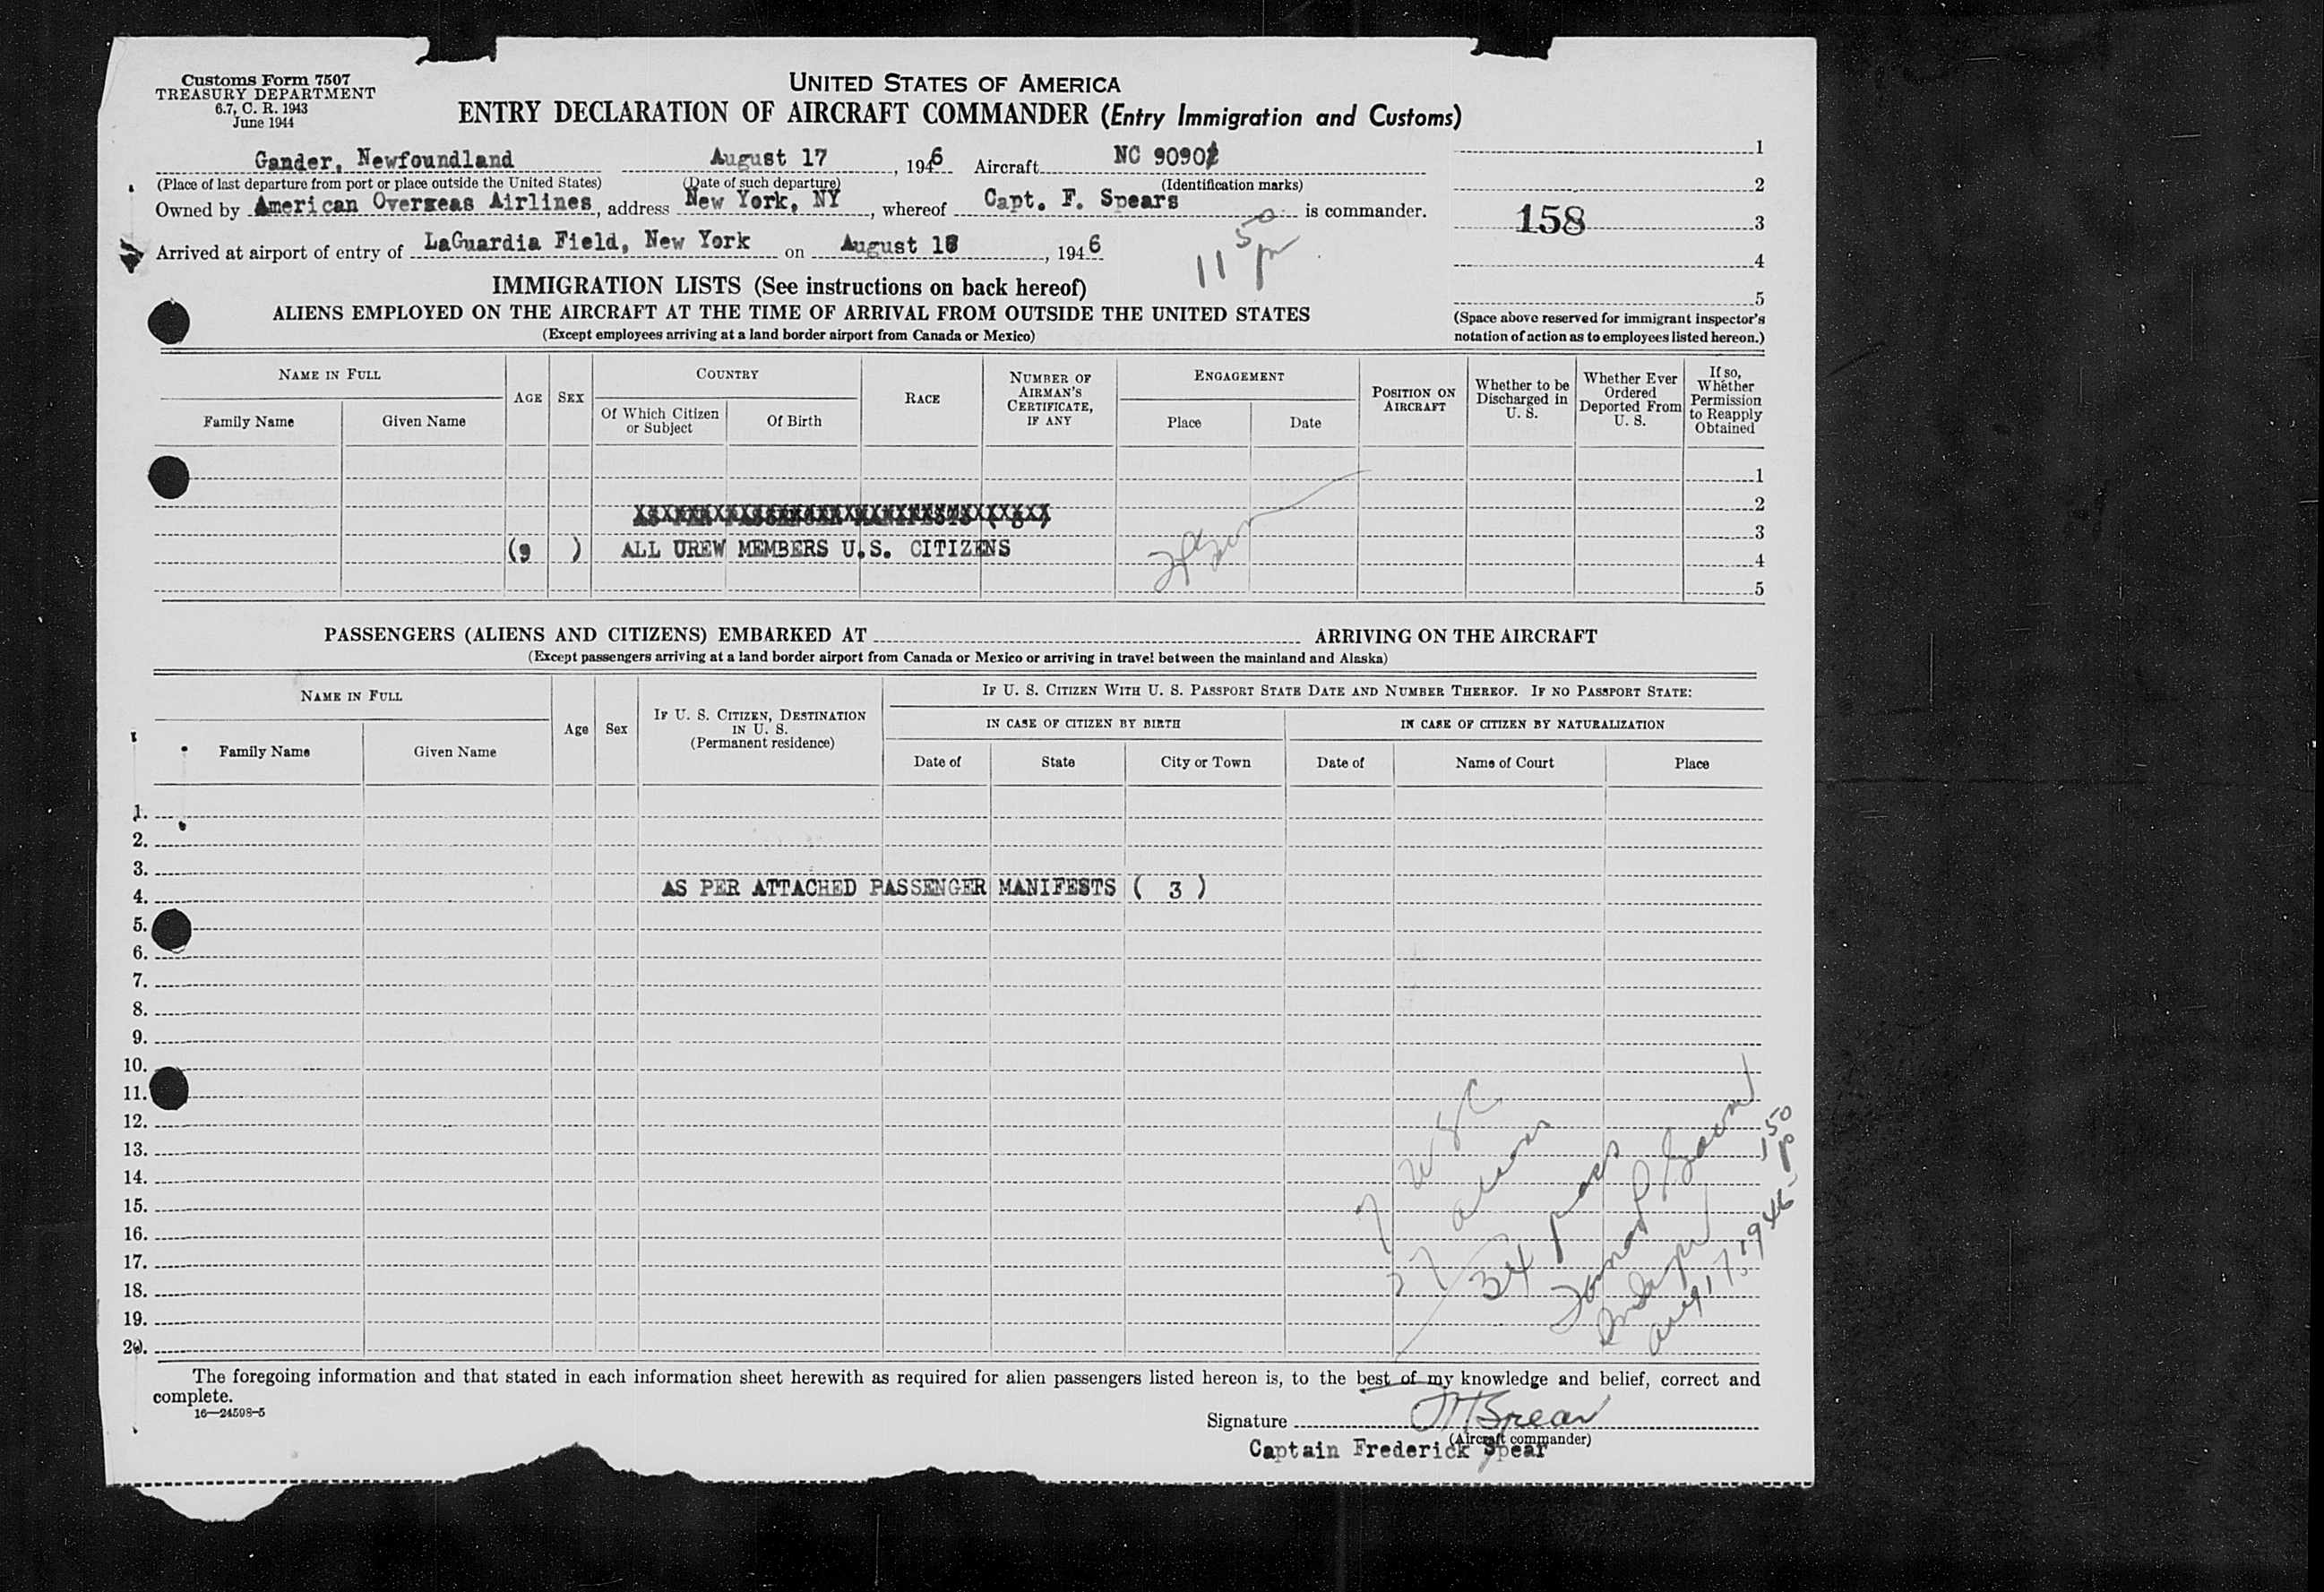 Customs Form 7507
TREASURY DEPARTMENT
6.7, C. R. 1943
June 1944
UNITED STATES OF AMERICA
ENTRY DECLARATION OF AIRCRAFT COMMANDER (Entry Immigration and Customs)
Gander, Newfoundland August 17, 1946 Aircraft NC 9090
(Place of last departure from port or place outside the United States) (Date of such departure) (Identification marks)
Owned by American Overseas Airlines, address New York, NY, whereof Capt. F. Spears is commander.
Arrived at airport of entry of LaGuardia Field, New York on August 18, 1946
11 50 pm
1
2
158 3
4
5
(Space above reserved for immigrant inspector's
notation of action as to employees listed hereon.)
IMMIGRATION LISTS (See instructions on back hereof)
ALIENS EMPLOYED ON THE AIRCRAFT AT THE TIME OF ARRIVAL FROM OUTSIDE THE UNITED STATES
(Except employees arriving at a land border airport from Canada or Mexico)
NAME IN FULL
Family Name Given Name
AGE SEX
COUNTRY
Of Which Citizen or Subject Of Birth
RACE
NUMBER OF AIRMAN'S CERTIFICATE, IF ANY
ENGAGEMENT
Place Date
POSITION ON AIRCRAFT
Whether to be Discharged in U. S.
Whether Ever Ordered Deported From U. S.
If so, Whether Permission to Reapply Obtained
1
2
3
(9 ) ALL UREW MEMBERS U.S. CITIZENS
4
5
PASSENGERS (ALIENS AND CITIZENS) EMBARKED AT ARRIVING ON THE AIRCRAFT
(Except passengers arriving at a land border airport from Canada or Mexico or arriving in travel between the mainland and Alaska)
NAME IN FULL
Family Name Given Name
Age Sex
IF U. S. CITIZEN, DESTINATION IN U. S.
(Permanent residence)
IF U. S. CITIZEN WITH U. S. PASSPORT STATE DATE AND NUMBER THEREOF. IF NO PASSPORT STATE:
IN CASE OF CITIZEN BY BIRTH IN CASE OF CITIZEN BY NATURALIZATION
Date of State City or Town Date of Name of Court Place
1.
2.
3.
AS PER ATTACHED PASSENGER MANIFESTS ( 3 )
4.
5.
6.
7.
8.
9.
10.
11.
12.
13.
14.
15.
16.
17.
18.
19.
20.
7 USC
27 aliens
34 pass
Aug 17, 1946
1 50 p
The foregoing information and that stated in each information sheet herewith as required for alien passengers listed hereon is, to the best of my knowledge and belief, correct and
complete.
16—24598-5
Signature Spear
(Aircraft commander)
Captain Frederick Spear